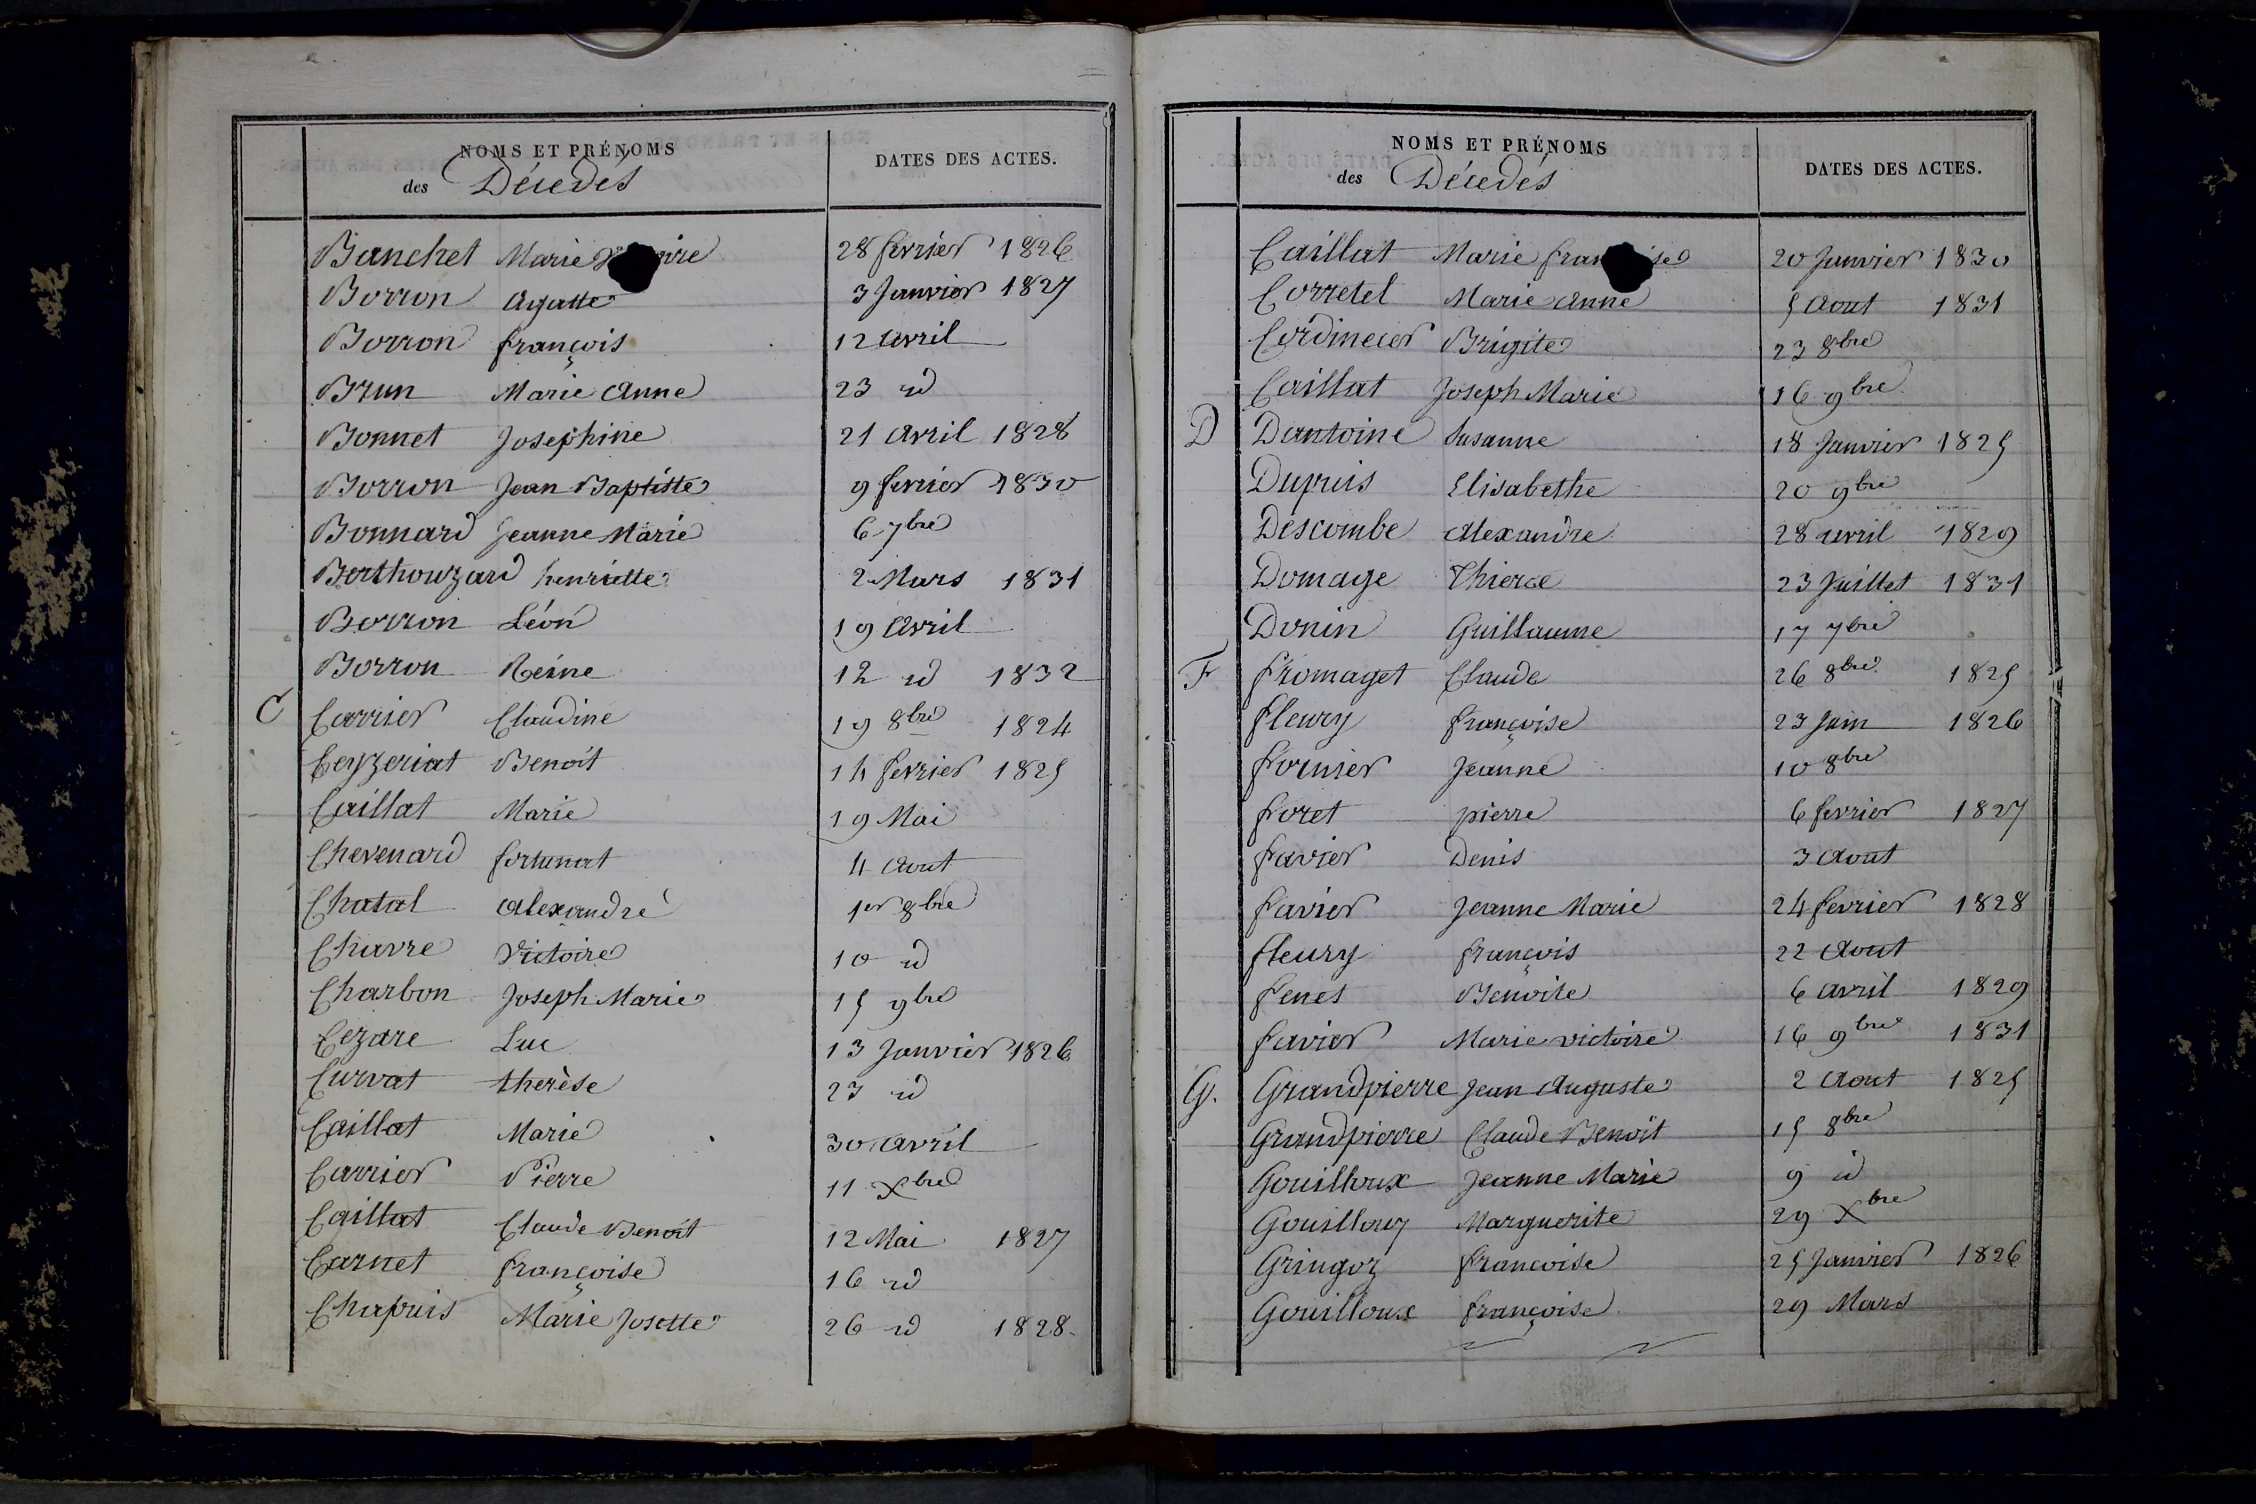 NOMS ET PRÉNOMS
des Décedés
DATES DES ACTES.
Banchet Marie 28 fevrier 1826
Borron Agatte 3 Janvier 1827
Borron françois 12 avril
Brun Marie Anne 23 id
Bonnet Josephine 21 avril 1828
Borron Jean Baptiste 9 fevrier 1830
Bonnard Jeanne Marie 6 7bre
Berthouzard henriette 2 Mars 1831
Borron Léon 19 avril
Borron Reine 12 id 1832
C Carrier Claudine 19 8bre 1824
Ceyzeriat Benoit 14 fevrier 1825
Caillat Marie 19 Mai
Chevenard fortunat 4 Aout
Chatal Alexandre 1er 8bre
Chavre Victoire 10 id
Charbon Joseph Marie 15 9bre
Cezare Luc 13 Janvier 1826
Curvat therèse 23 id
Caillat Marie 30 avril
Carrier Pierre 11 Xbre
Caillat Claude Benoit 12 Mai 1827
Carnet françoise 16 id
Chapuis Marie Josette 26 id 1828
NOMS ET PRÉNOMS
des Décedés
DATES DES ACTES.
Caillat Marie 20 Janvier 1830
Corretel Marie Anne 5 Aout 1831
Brigite 23 8bre
Caillat Joseph Marie 16 9bre
D Dantoine Susanne 18 Janvier 1825
Dupuis Elisabethe 20 9bre
Descombe Alexandre 28 avril 1829
Domage Thierce 23 Juillet 1831
Donin Guillaume 17 7bre
F Fromaget Claude 26 8bre 1825
Fleury françoise 23 Juin 1826
Fornier Jeanne 10 8bre
Foret pierre 6 fevrier 1827
Favier Denis 3 Aout
Favier Jeanne Marie 24 fevrier 1828
Fleury françois 22 Aout
Fenet Benoite 6 avril 1829
Favier Marie victoire 16 9bre 1831
G. Grandpierre Jean Auguste 2 Aout 1825
Grandpierre Claude Benoit 15 8bre
Gouilloux Jeanne Marie 9 id
Gouilloux Marguerite 29 Xbre
Gringoz francoise 25 Janvier 1826
Gouilloux françoise 29 Mars